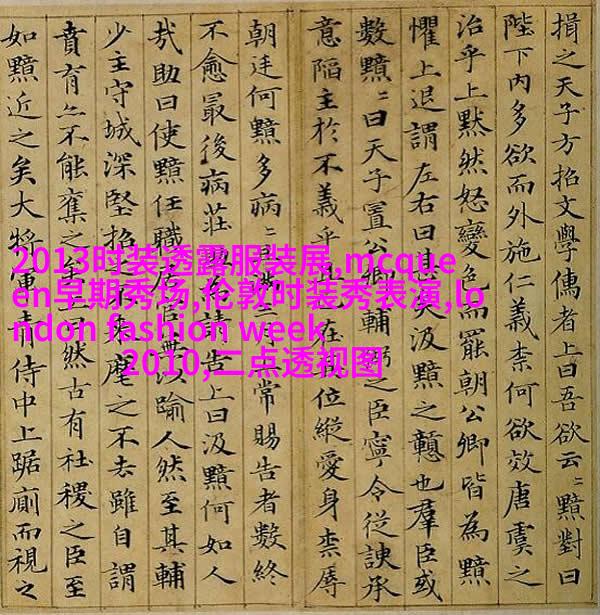 揖之天子方招文學儒者上曰吾欲云〻黯對曰
陛下内多欲而外施仁義柰何欲效唐虞之
治乎上默然怒變色而罷朝公卿皆為黯
懼上退謂左右曰甚矣汲黯之戇也羣臣或
數黯〻曰天子置公卿輔弼之臣寧令從諛承
意陷主於不義乎在位縱愛身柰辱
朝廷何黯多病〻滿三常賜告者數終
不愈最後病莊助請告上曰汲黯何如人
哉助曰使黯任職居官無以踰人然至其輔
少主守城深堅招不來麾之不去雖自謂
賁育亦不能奪之曰然古有社稷之臣至
如黯近之矣大將軍青侍中上踞廁而視之
2013时装透露服装展,mcque
en早期秀场,伦敦时装秀表演,lo
ndon fashion week
2010,二点透视图